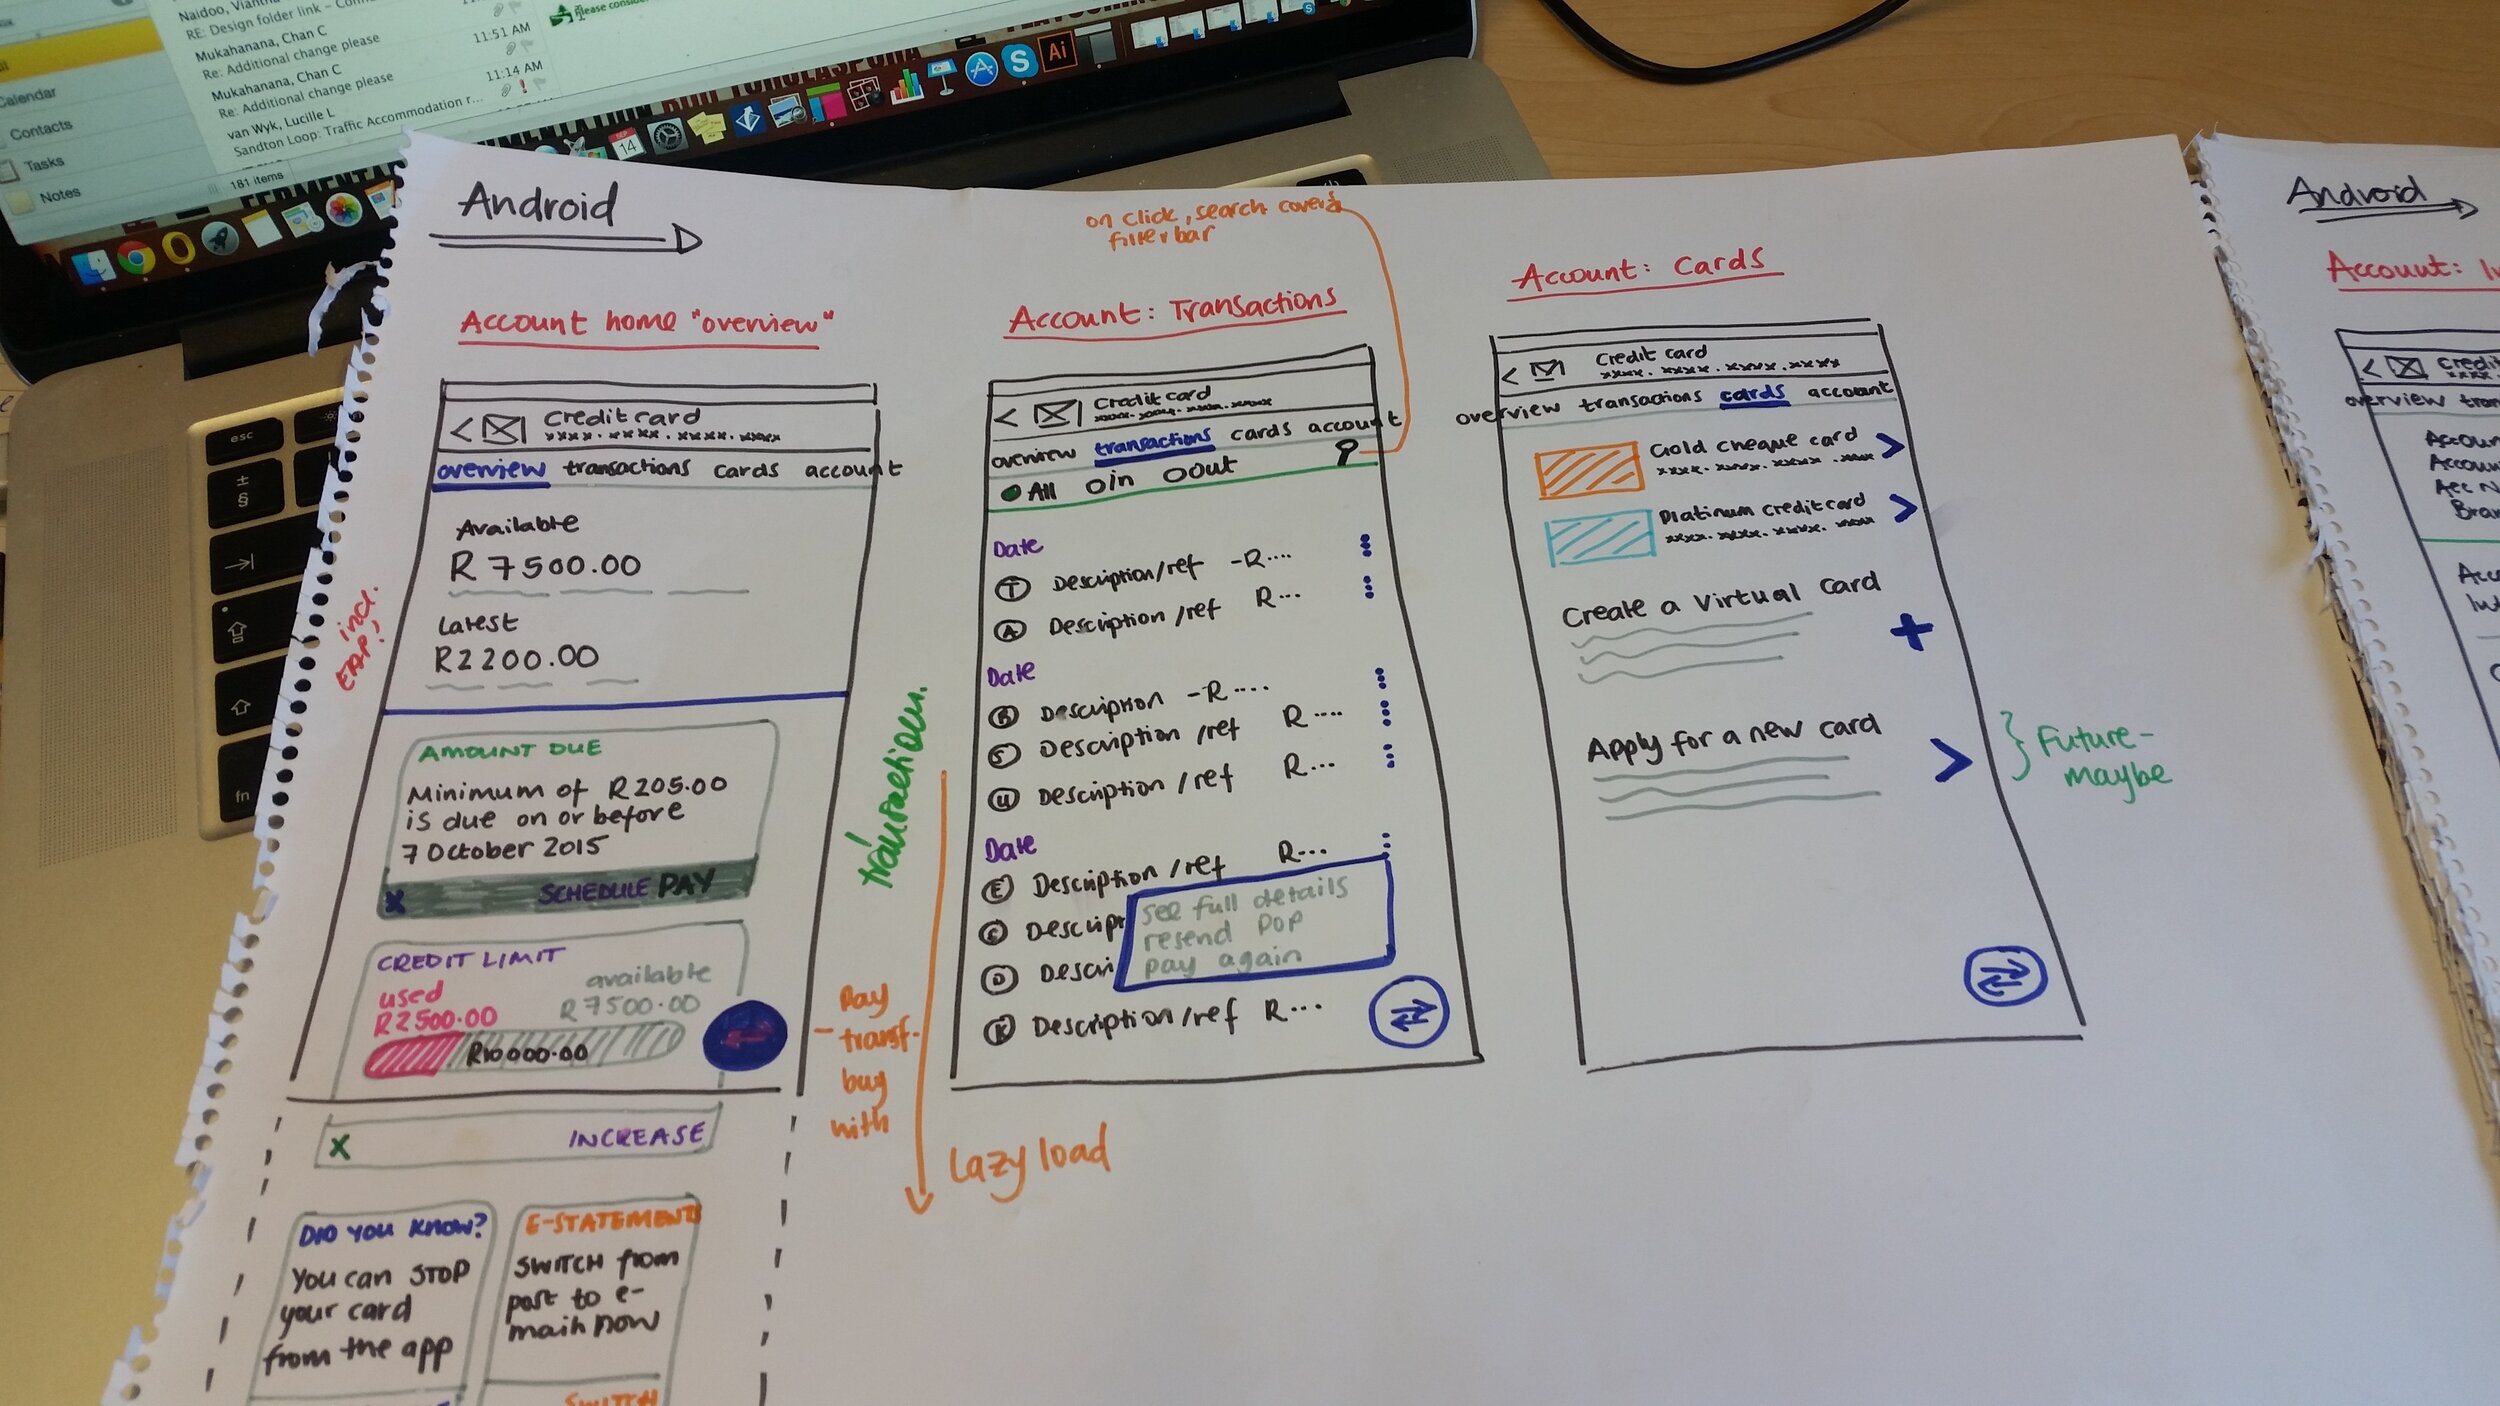 Naidoo,
RE: Design folder link –
Mukahanana, Chan C
11:51 AM
Re: Additional change please
Mukahanana, Chan C
11:14 AM
Re: Additional change please
van Wyk, Lucille L
Sandton Loop: Traffic Accommodation r...
181 items
Calendar
Contacts
Tasks
Notes
please consid
SEP
14
Ai
esc
±
§
fn
Android
Account home "overview"
Credit card
xxxx. xxxx. xxxx. xxxx
overview transactions cards account
Available
R 7500.00
Latest
R2200.00
incl.
AMOUNT DUE
Minimum of R205.00
is due on or before
7 October 2015
X SCHEDULE PAY
CREDIT LIMIT
used
R2500.00
available
R7500.00
R10000.00
X INCREASE
DID YOU KNOW?
You can STOP
your card
from the app
E-STATEMENTS
SWITCH from
post to e-
mail now
SWITCH
Pay
- transf.
buy
with
Lazy load
on click, search covers
filter bar
Account: Transactions
Credit card
xxxx. xxxx. xxxx. xxxx
overview transactions cards account
All in out
Date
T Description/ref -R....
A Description/ref R...
Date
R Description -R....
S Description/ref R....
U Description/ref R...
Date
E Description/ref R...
C Descript
D Descri
see full details
resend POP
pay again
K Description/ref R...
Account: Cards
Credit card
xxxx. xxxx. xxxx. xxxx
overview transactions cards account
Gold cheque card
xxxx. xxxx. xxxx. xxxx
Platinum credit card
xxxx. xxxx. xxxx. xxxx
Create a virtual card
+
Apply for a new card
Future-
maybe
Android
Account: I
Credit
xxxx.
overview tran
Accoun
Accou
Acc N
Bran
Acc